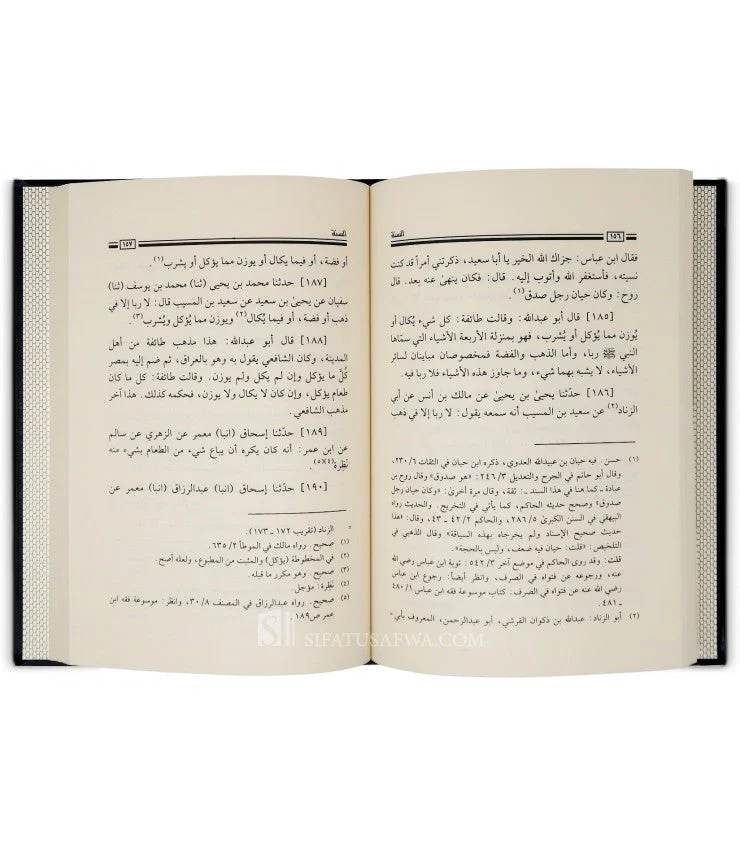 السنة
١٥٦
فقال ابن عباس: جزاك الله الخير يا أبا سعيد، ذكرتني أمراً قد كنت
نسيته، فأستغفر الله وأتوب إليه. قال: فكان ينهىٰ عنه بعد. قال
روح: وكان حيان رجل صدق(١).
[١٨٥] قال أبو عبدالله: وقالت طائفة: كل شيء يُكال أو
يُوزن مما يُؤكل أو يُشرب، فهو بمنزلة الأربعة الأشياء التي سمّاها
النبي ﷺ ربا، وأما الذهب والفضة فمخصوصان مباينان لسائر
الأشياء، لا يشبه بهما شيء، وما جاوز هذه الأشياء فلا ربا فيه.
[١٨٦] حدّثنا يحيىٰ بن يحيىٰ عن مالك بن أنس عن أبي
الزناد(٢) عن سعيد بن المسيب أنه سمعه يقول: لا ربا إلا في ذهب
(١) حسن. فيه حيان بن عبيدالله العدوي، ذكره ابن حبان في الثقات ٢٣٠/٦،
وقال أبو حاتم في الجرح والتعديل ٢٤٦/٣: «هو صدوق» وقال روح بن
عبادة ـ كما هنا في هذا السند ـ: ثقة، وقال مرة أخرىٰ: «وكان حيان رجل
صدوق» وصحح حديثه الحاكم، كما يأتي في التخريج. والحديث رواه
البيهقي في السنن الكبرىٰ ٢٨٦/٥، والحاكم ٤٢/٢ ـ ٤٣، وقال: «هذا
حديث صحيح الإسناد ولم يخرجاه بهذه السياقة» وقال الذهبي في
التلخيص: «قلت: حيان فيه ضعف، وليس بالحجة».
قلت: وقد روى الحاكم في موضع آخر ٥٤٢/٣: توبة ابن عباس رضي الله
عنه، ورجوعه عن فتواه في الصرف، وانظر أيضاً: رجوع ابن عباس
رضي الله عنه عن فتواه في الصرف: كتاب موسوعة فقه ابن عباس ٤٨٠/١
ـ ٤٨١.
(٢) أبو الزناد: عبدالله بن ذكوان القرشي، أبو عبدالرحمن، المعروف بأبي=
السنة
١٥٧
أو فضة، أو فيما يكال أو يوزن مما يؤكل أو يشرب(١).
[١٨٧] حدثنا محمد بن يحيى (ثنا) محمد بن يوسف (ثنا)
سفيان عن يحيى بن سعيد عن سعيد بن المسيب قال: لا ربا إلا في
ذهب أو فضة، أو فيما يُكال(٢) ويوزن مما يُؤكل ويُشرب(٣).
[١٨٨] قال أبو عبدالله: هذا مذهب طائفة من أهل
المدينة، وكان الشافعي يقول به وهو بالعراق، ثم ضم إليه بمصر
كُلَّ ما يؤكل وإن لم يكل ولم يوزن. وقالت طائفة: كل ما كان
طعام يؤكل، وإن كان لا يكال ولا يوزن، فحكمه كذلك. هذا آخر
مذهب الشافعي.
[١٨٩] حدّثنا إسحاق (انبا) معمر عن الزهري عن سالم
عن ابن عمر: أنه كان يكره أن يباع شيء من الطعام بشيء منه
نَظِرة(٤)(٥).
[١٩٠] حدّثنا إسحاق (انبا) عبدالرزاق (انبا) معمر عن
= الزناد (تقريب ١٧٢ ـ ١٧٣).
(١) صحيح. رواه مالك في الموطأ ٦٣٥/٢.
(٢) في المخطوطة (يؤكل) والمثبت من المطبوع، ولعله أصح.
(٣) صحيح. وهو مكرر ما قبله.
(٤) نَظِرة: مؤجل.
(٥) صحيح. رواه عبدالرزاق في المصنف ٣٠/٨، وانظر: موسوعة فقه ابن
عمر ص١٨٩.
SIFATUSAFWA.COM